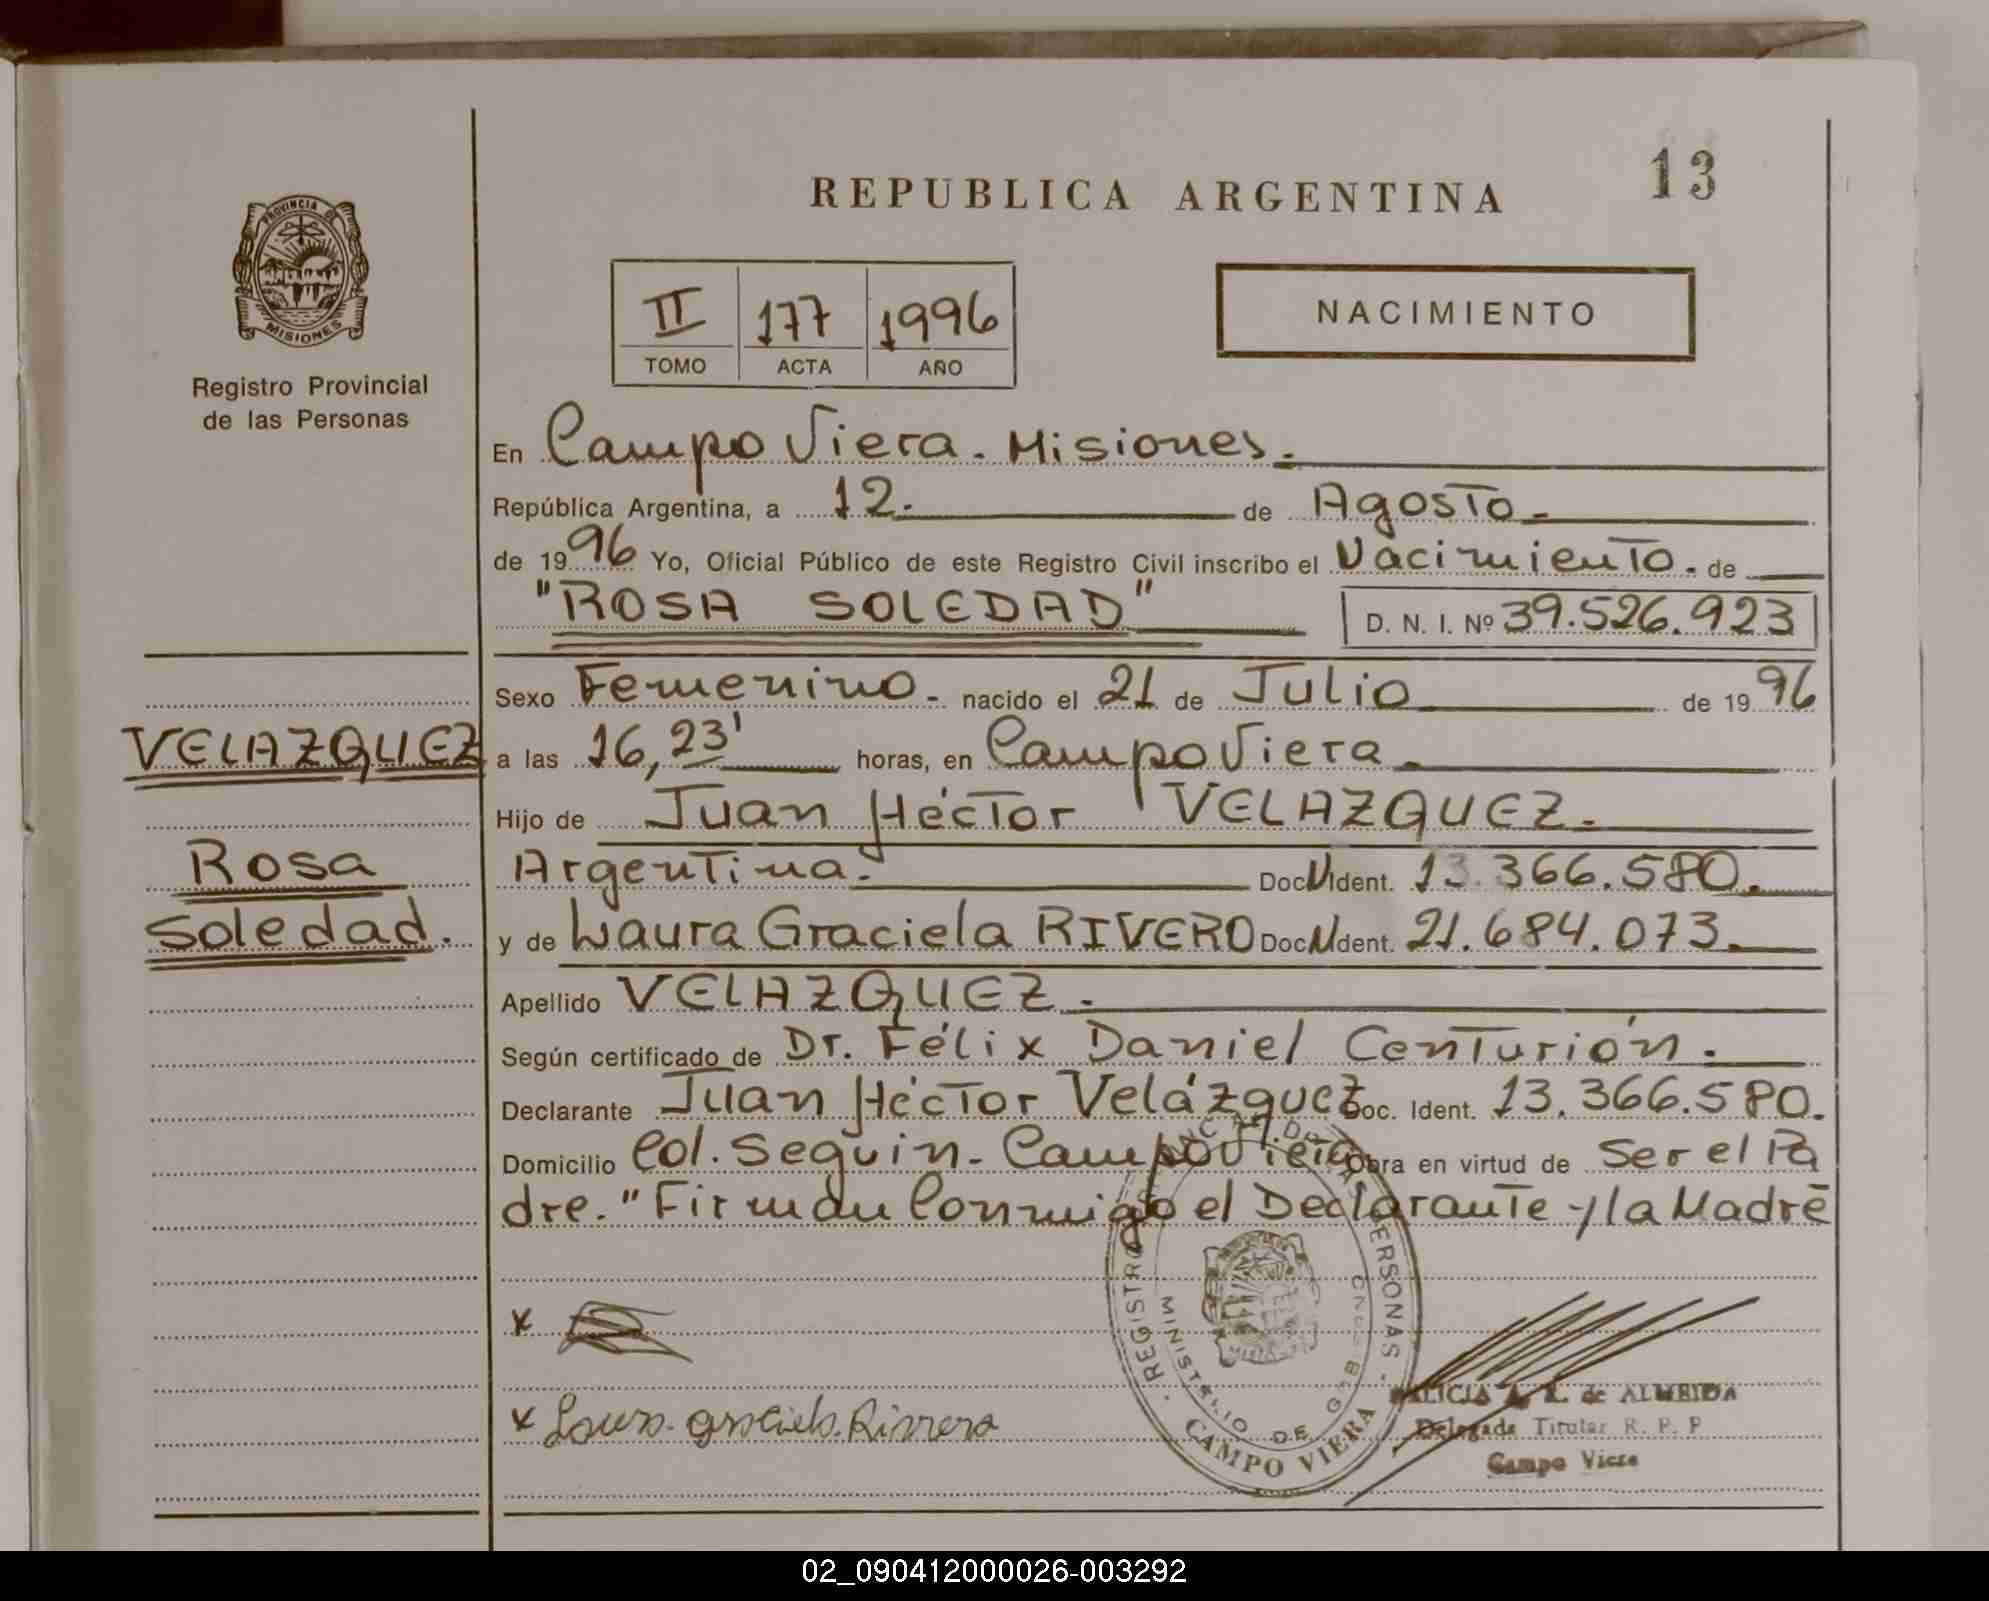 13
REPUBLICA ARGENTINA
PROVINCIA DE
MISIONES
Registro Provincial
de las Personas
II 177 1996
TOMO ACTA AÑO
NACIMIENTO
En Campo Viera. Misiones.
República Argentina, a 12. de Agosto.
de 1996 Yo, Oficial Público de este Registro Civil inscribo el Nacimiento. de
"ROSA SOLEDAD" D. N. I. Nº 39.526.923
Sexo Femenino. nacido el 21 de Julio de 1996
VELAZQUEZ
a las 16,23' horas, en Campo Viera.
Hijo de Juan Héctor VELAZQUEZ.
Rosa
Argentina. Doc N Ident. 13.366.580.
Soledad.
y de Laura Graciela RIVERO Doc N Ident. 21.684.073.
Apellido VELAZQUEZ.
Según certificado de Dr. Félix Daniel Centurión.
Declarante Juan Héctor Velázquez Doc. Ident. 13.366.580.
Domicilio Col. Seguin. Campo Viera Obra en virtud de Ser el Pa
dre. "Firman Conmigo el Declarante y la Madre
x
x Laura Graciela Rivero
MINISTERIO DE GOB
CAMPO VIERA
ALICIA de ALMEIDA
Delegada Titular R. P. P
Campo Viera
02_090412000026-003292